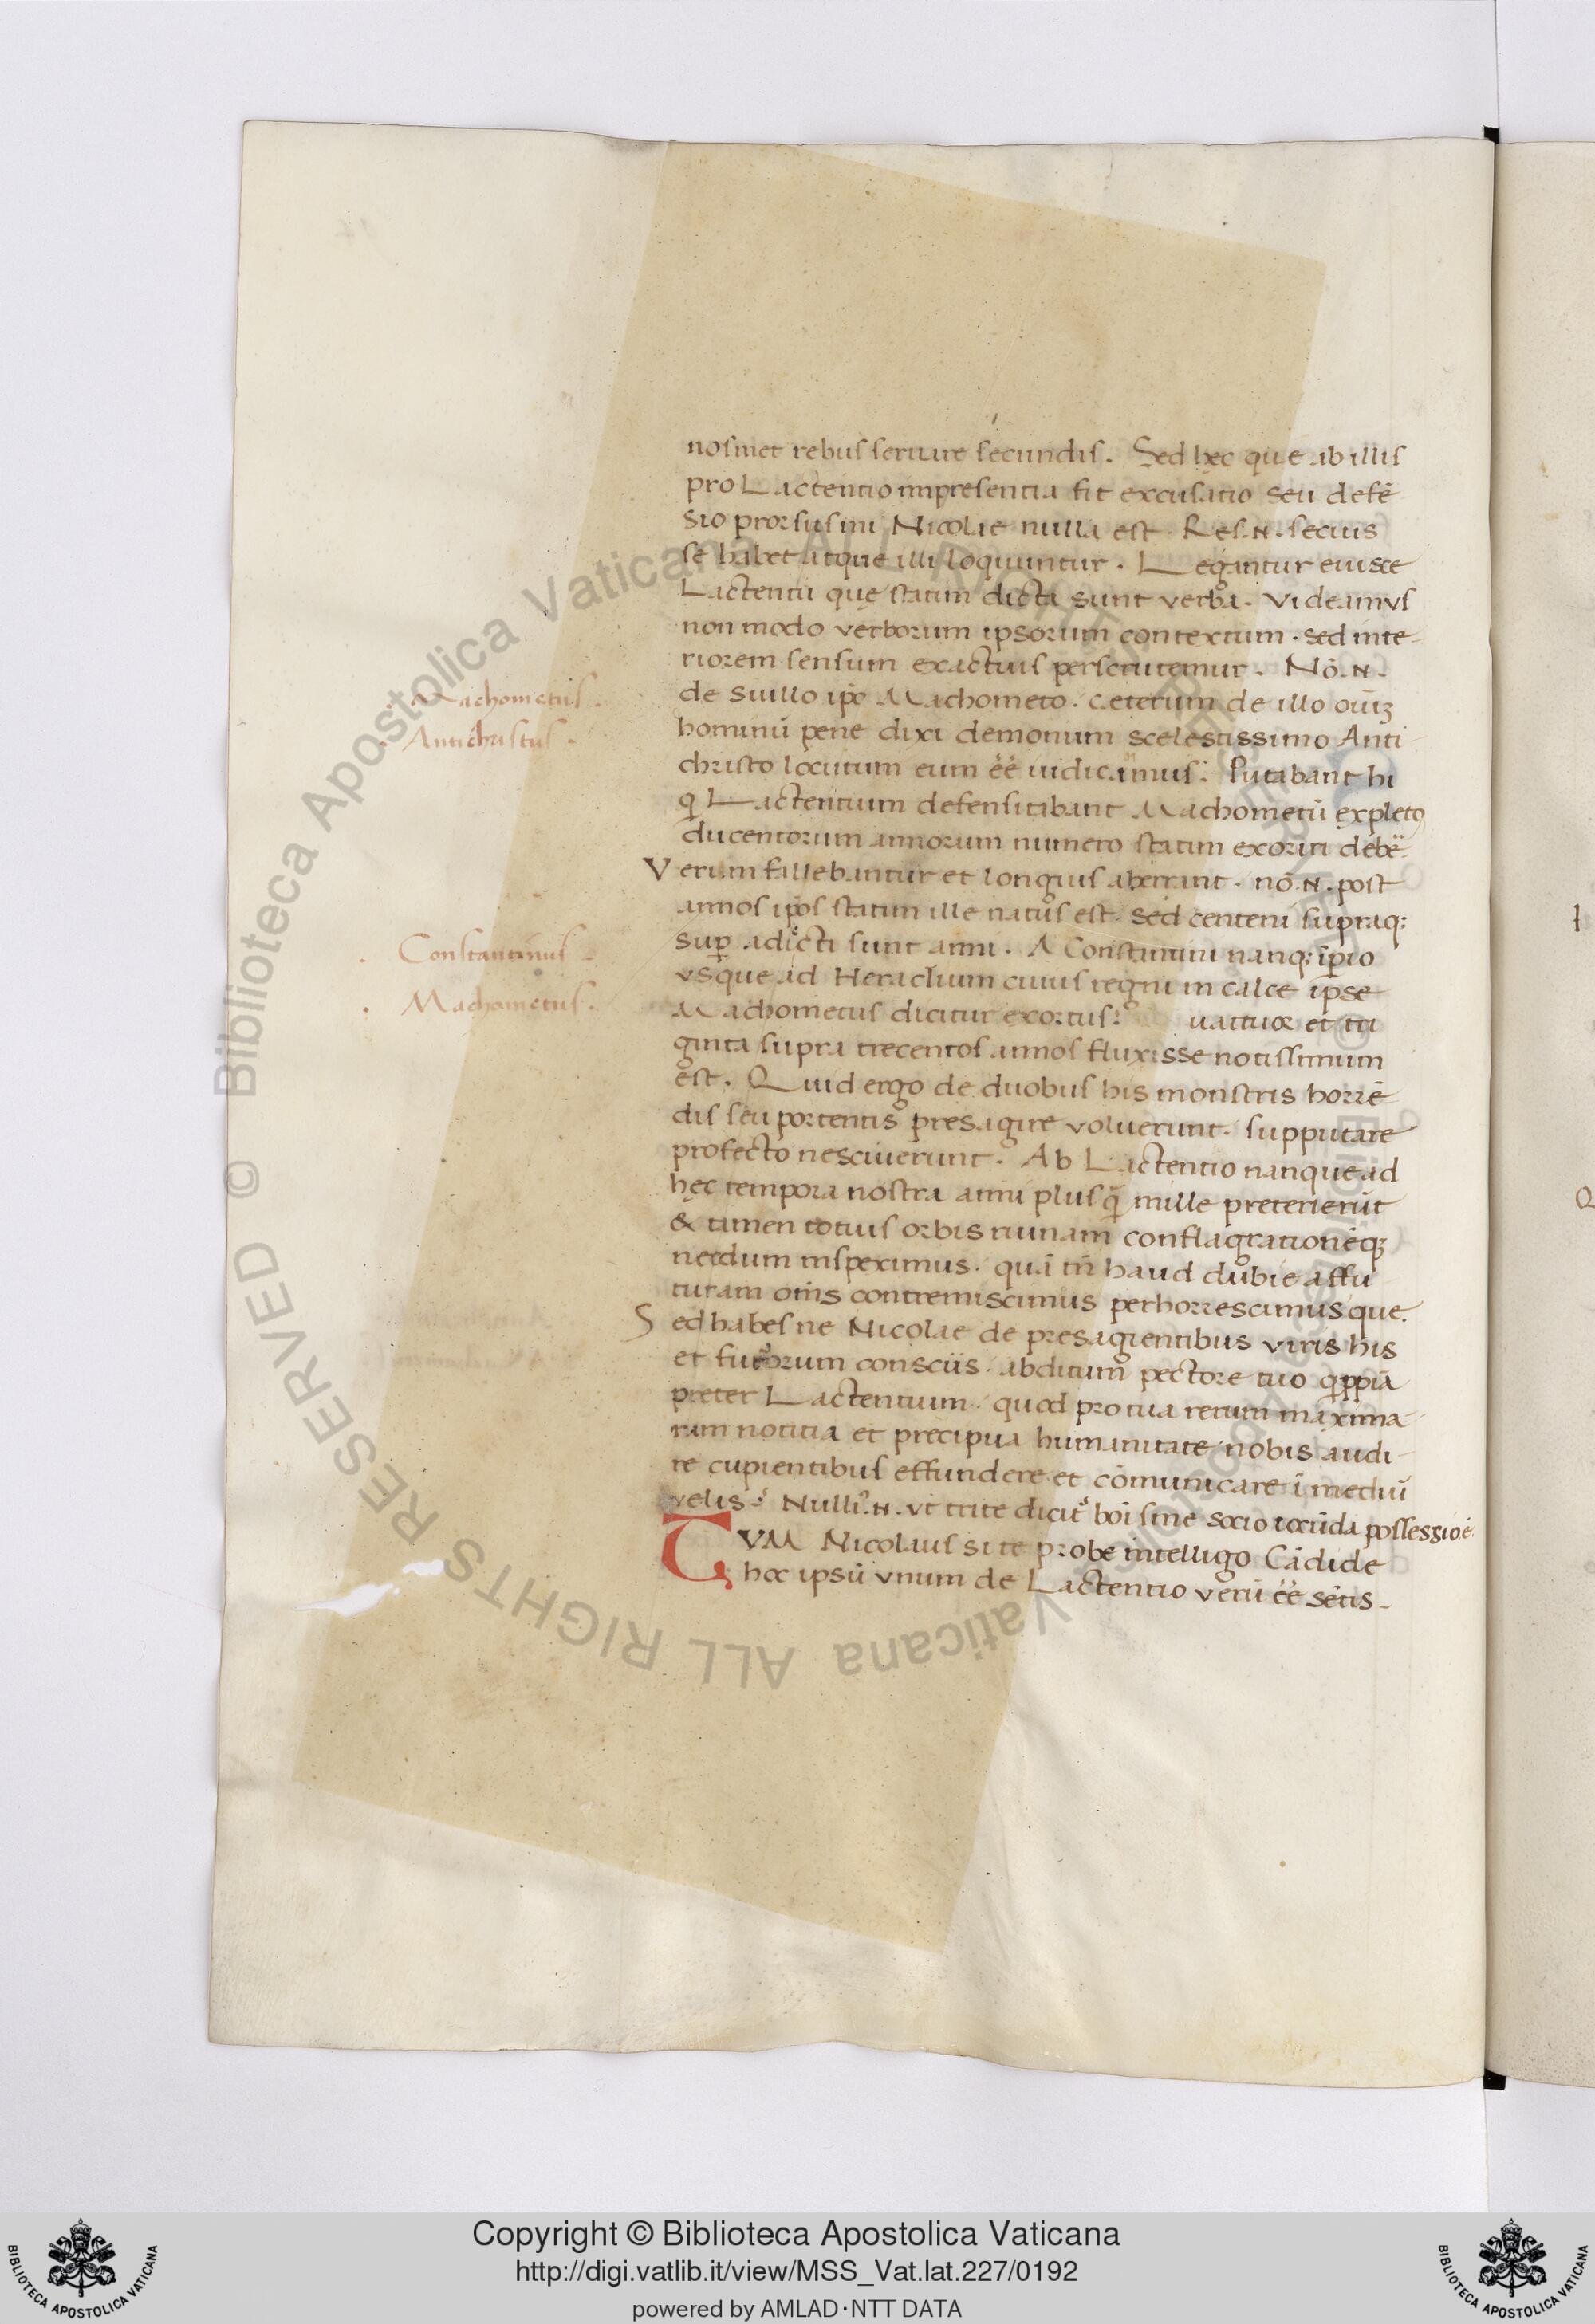 nosmet rebus seruare secundis. Sed hęc quę ab illis
pro Lactentio inpresentia fit excusatio seu defē
sio prorsus mi Nicolae nulla est. Res .N. secius
se habet atque illi loquuntur. Legantur eiusce
Lactentii quę statim dicta sunt verba. Videamus
non modo verborum ipsorum contextum. sed inte-
riorem sensum exactius perscrutemur. Nō .N.
de Suillo ip̄o Machometo. ceterum de illo oīuꝫ
· Machometus ·
hominū pene dixi demonum scelestissimo Anti
· Antichristus ·
christo locutum eum ēē iudicamus: Putabant hi
q̄ Lactentium defensitabant Machometū expleto
ducentorum annorum numero statim exoriri debē.
Verum fallebantur et longius aberrant. nō .N. post
annos ip̄os statim ille natus est. sed centeni supraq:
sup adicti sunt anni. A Constantini nanq: īperio
· Constantinus ·
vsque ad Heraclium cuius regni in calce ipse
· Machometus ·
Machometus dicitur exortus: uattuor et tri
ginta supra trecentos annos fluxisse notissimum
est. Quid ergo de duobus his monstris horrē
dis seu portentis presagire voluerunt. supputare
profecto nesciuerunt. Ab Lactentio nanque ad
hęc tempora nostra anni plusq̄ mille preterierūt
& tamen totius orbis ruinam conflagrationēqꝫ
necdum inspeximus. quā tn̄ haud dubie affu
turam om̄s contremiscimus perhorrescimusque.
Sed habes ne Nicolae de presagientibus viris his
et futurorum consciis. abditum pectore tuo qppiā
preter Lactentium. quod pro tua rerum maxima
rum notitia et precipua humanitate nobis audi-
re cupientibus effundere et cōmunicare ī mediū
velis: Nulli⁹ .N. vt trite dicit᷑ boī sine socio iocūda possessio ē.
TVM Nicolaus si te probe intelligo Cādide
hoc ipsū vnum de Lactentio verū ēē sētis.
Copyright © Biblioteca Apostolica Vaticana
http://digi.vatlib.it/view/MSS_Vat.lat.227/0192
powered by AMLAD·NTT DATA